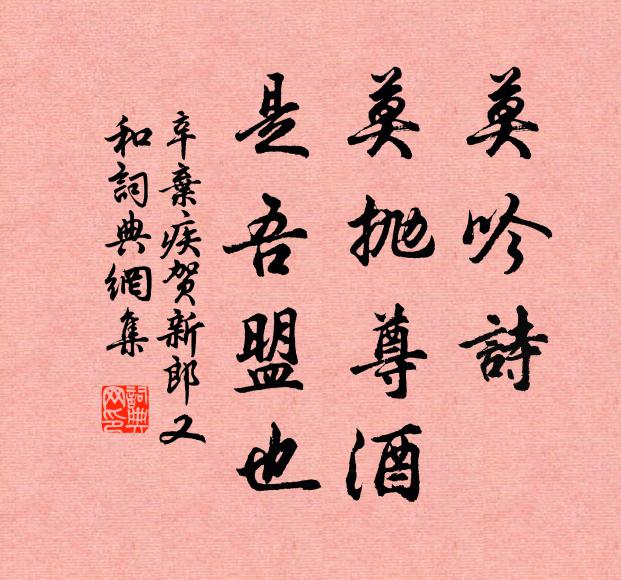 莫吟詩
莫抛尊酒
是吾盟也
辛棄疾賀新郎又
和詞典網集
詞典
网印